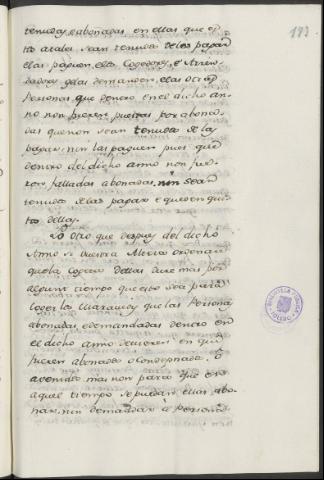 183
tenudas, e abonadas en ellas que es
tos atales sean tenudos delos pagar
e las paguen, e los Cogedores, e Arren
dadores gelas demanden, e las otras
Personas, que dentro en el dicho an
no non fueren puestas por abona
das que non sean tenudas de las
pagar, nin las paguen pues que
dentro del dicho anno non fue
ron falladas abonadas, nin sean
tenudas de las pagar e queden qui
tos dellas.
Lo otro que despues del dicho
Anno si Vuestra Merced ordenare
que la Cogecha dellas dure mas por
algunt tiempo que esto sea para
coger los Maravedis que las Personas
abonadas e demandadas dentro en
el dicho anno devieren en que
fueren abonadas o condepnadas, e
avenidas mas non para que en
aquel tiempo se puedan ellas abo
nar, nin demandar a Personas
BIBLIOTECA